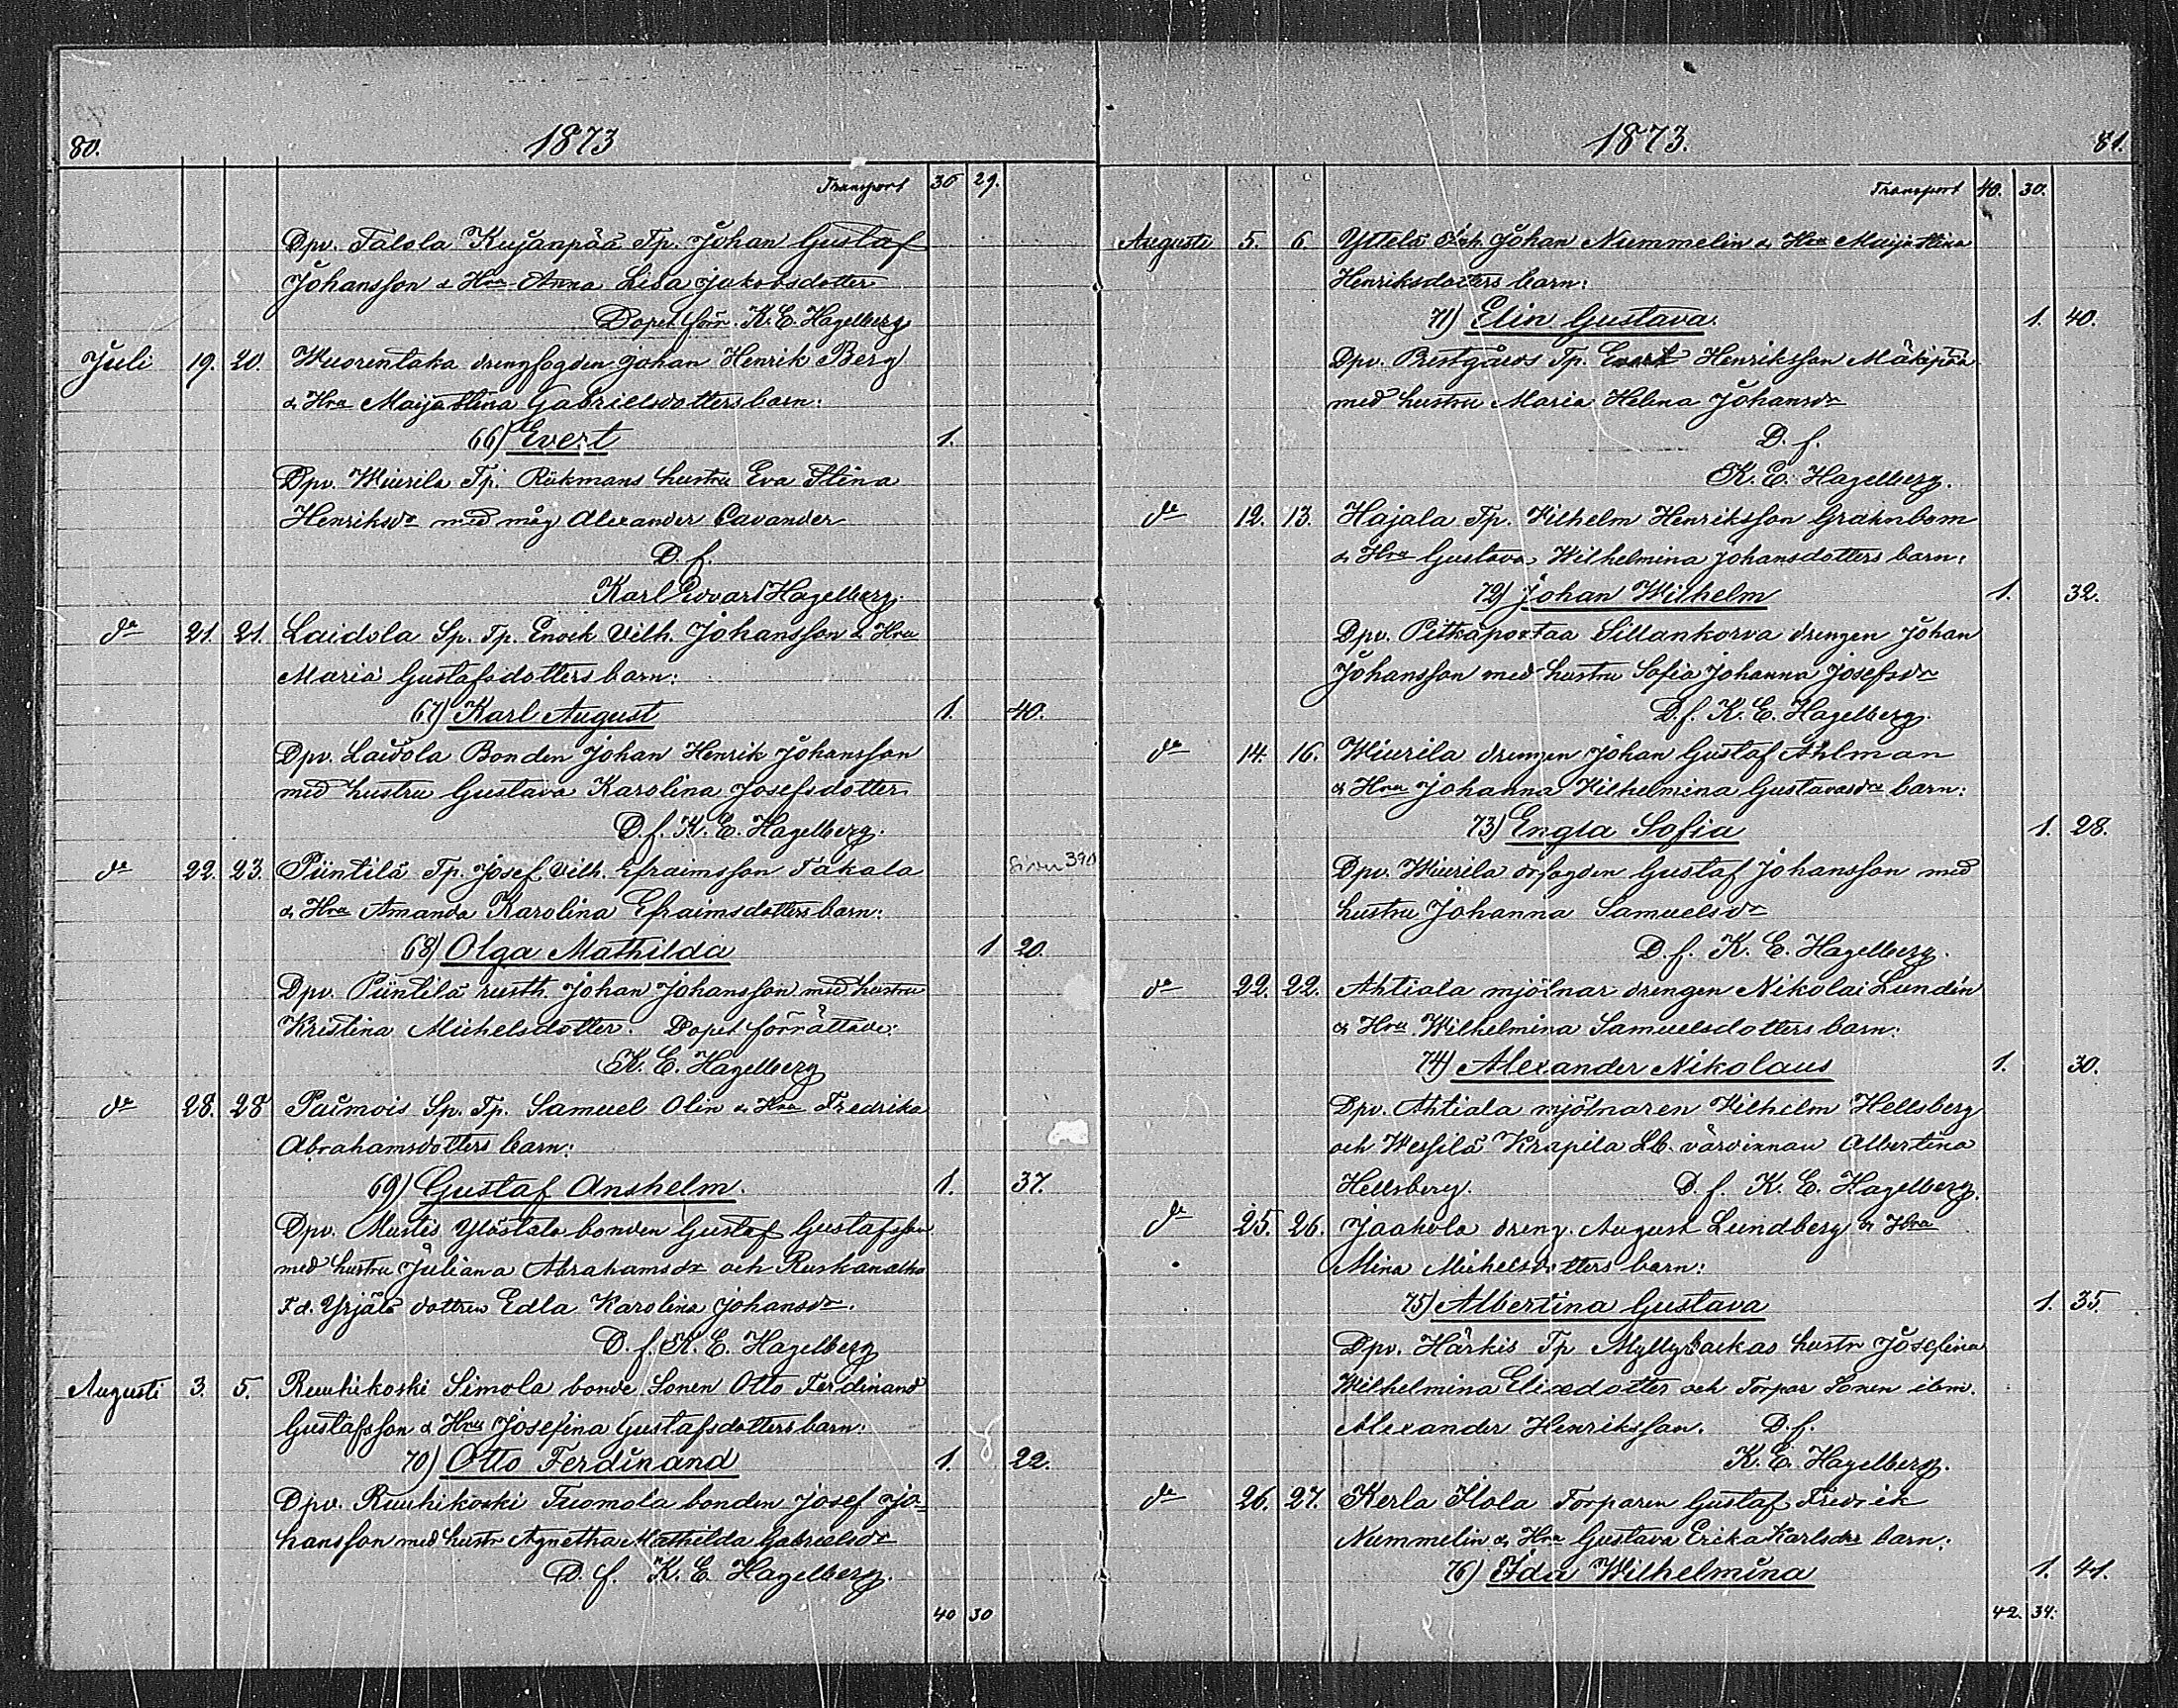 80.
1873
Transport 36 29.
Dpv. Talola Kujanpää Tp. Johan Gustaf
Johansson & Hru Anna Lisa Jakobsdotter
Dopet förr. K. E. Hagelberg
Juli 19. 20. Wuorentaka drengfogden Johan Henrik Berg
& Hru Maija Stina Gabrielsdotters barn:
66) Evert 1.
Dpv. Wiurila Tp. Rökmans hustru Eva Stina
Henriksdr med måg Alexander Cavander
D. f.
Karl Edvard Hagelberg.
do 21. 21. Laidola Sp. Tp. Enock Vilh. Johansson & Hru
Maria Gustafsdotters barn:
67) Karl August 1. 40.
Dpv. Laidola Bonden Johan Henrik Johansson
med hustru Gustava Karolina Josefsdotter
D. f. K. E. Hagelberg.
do 22. 23. Püntilä Tp. Josef Vilh. Efraimsson Takala
390
& Hru Amanda Karolina Efraimsdotters barn:
68) Olga Mathilda 1 20.
Dpv. Püntilä rusth. Johan Johansson med hustru
Kristina Michelsdotter. Dopet förrättade:
K. E. Hagelberg
do 28. 28 Paimois Sp. Tp. Samuel Olin & Hru Fredrika
Abrahamsdotters barn:
69) Gustaf Anshelm. 1. 37.
Dpv. Mustis Ylöstalo bonden Gustaf Gustafsson
med hustru Juliana Abrahamsdr och Ruskanalho
Fd. Yrjälä dottren Edla Karolina Johansdr.
D. f. K. E. Hagelberg
Augusti 3. 5. Ruuhikoski Simola bonde Sonen Otto Ferdinand
Gustafsson & Hru Josefina Gustafsdotters barn:
70) Otto Ferdinand 1. 22.
Dpv. Ruuhikoski Tuomola bonden Josef Jo-
hansson med hustr Agnetha Mathilda Gabrielsdr
D. f. K. E. Hagelberg.
40 30
1873.
81.
Transport 40. 30.
Augusti 5. 6 Yttelä Inh. Johan Nummelin & Hru Maija Stina
Henriksdotters barn:
71) Elin Gustava. 1. 40.
Dpv. Prestgårds Tp. Evert Henriksson Mäkipää
med hustru Maria Helena Johansdr
D. f.
K. E. Hagelberg.
do 12. 13. Hajala Tp. Vilhelm Henriksson Grahnbom
& Hru Gustava Wilhelmina Johansdotters barn:
72) Johan Wilhelm 1. 32.
Dpv. Pitkäportaa Sillankorva drengen Johan
Johansson med hustru Sofia Johanna Josefsdr
D. f. K. E. Hagelberg.
do 14. 16. Wiurila drengen Johan Gustaf Ahlman
& Hru Johanna Vilhelmina Gustavsdrs barn:
73) Engla Sofia 1. 28.
Dpv. Wiurila drfogden Gustaf Johansson med
hustru Johanna Samuelsdr
D. f. K. E. Hagelberg.
do 22. 22. Ahtiala mjölnar drengen Nikolai Lundén
& Hru Wilhelmina Samuelsdotters barn:
74) Alexander Nikolaus 1. 30.
Dpv. Ahtiala mjölnaren Vilhelm Hellsberg
och Wessilä Krapila Lb. värdinnan Albertina
Hellsberg. D. f. K. E. Hagelberg.
do 25. 26. Jaakola dreng. August Lundberg & Hru
Mina Michelsdotters barn:
75) Albertina Gustava 1. 35.
Dpv. Härkis Tp Myllybackas hustr Josefina
Wilhelmina Eliædotter och Torpar Sonen ibm.
Alexander Henriksson. D. f.
K. E. Hagelberg.
do 26. 27. Kerla Hola Torparen Gustaf Fredrik
Nummelin & Hru Gustava Erika Karlsdrs barn:
76) Ida Wilhelmina 1. 41.
42. 34.